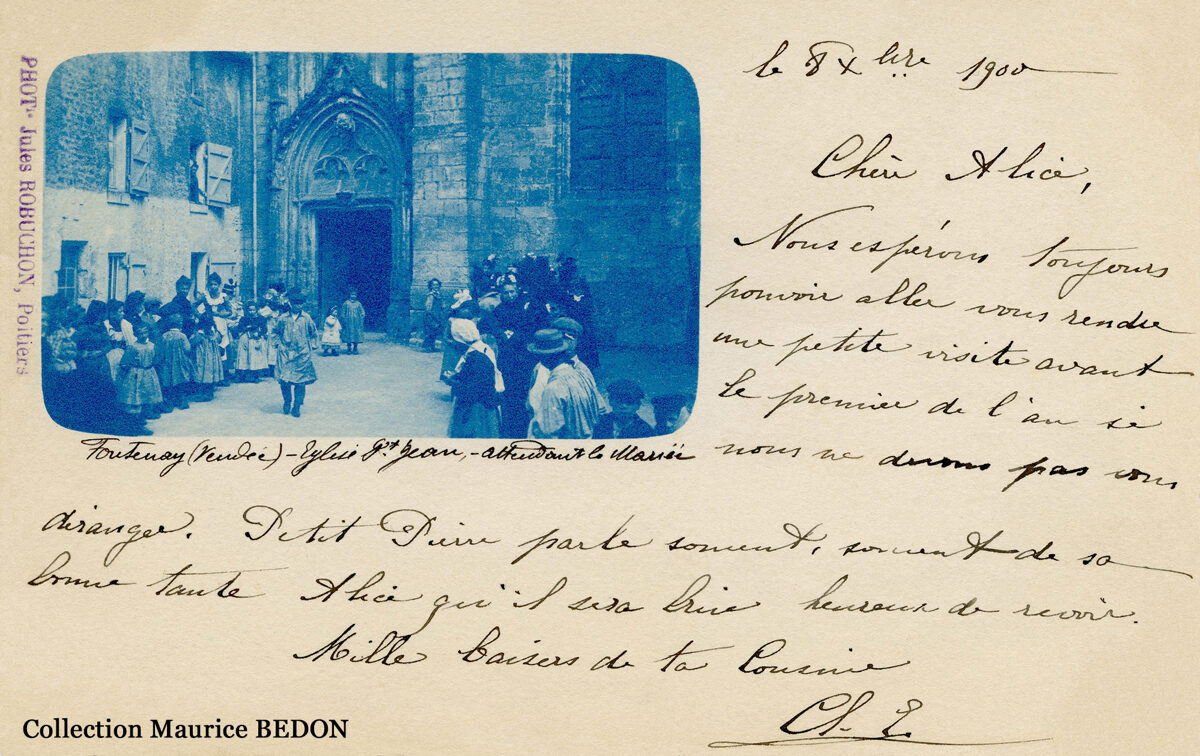 PHOT^ie Jules ROBUCHON, Poitiers
le 8 X^bre 1900
Chère Alice,
Nous espérons toujours
pouvoir aller vous rendre
une petite visite avant
le premier de l'an si
nous ne devons pas vous
déranger. Petit Pierre parle souvent, souvent de sa
bonne tante Alice qu'il sera bien heureux de revoir.
Mille baisers de ta Cousine
Ch. E.
Fontenay (Vendée) - Eglise St Jean, - attendant la Mariée
Collection Maurice BEDON